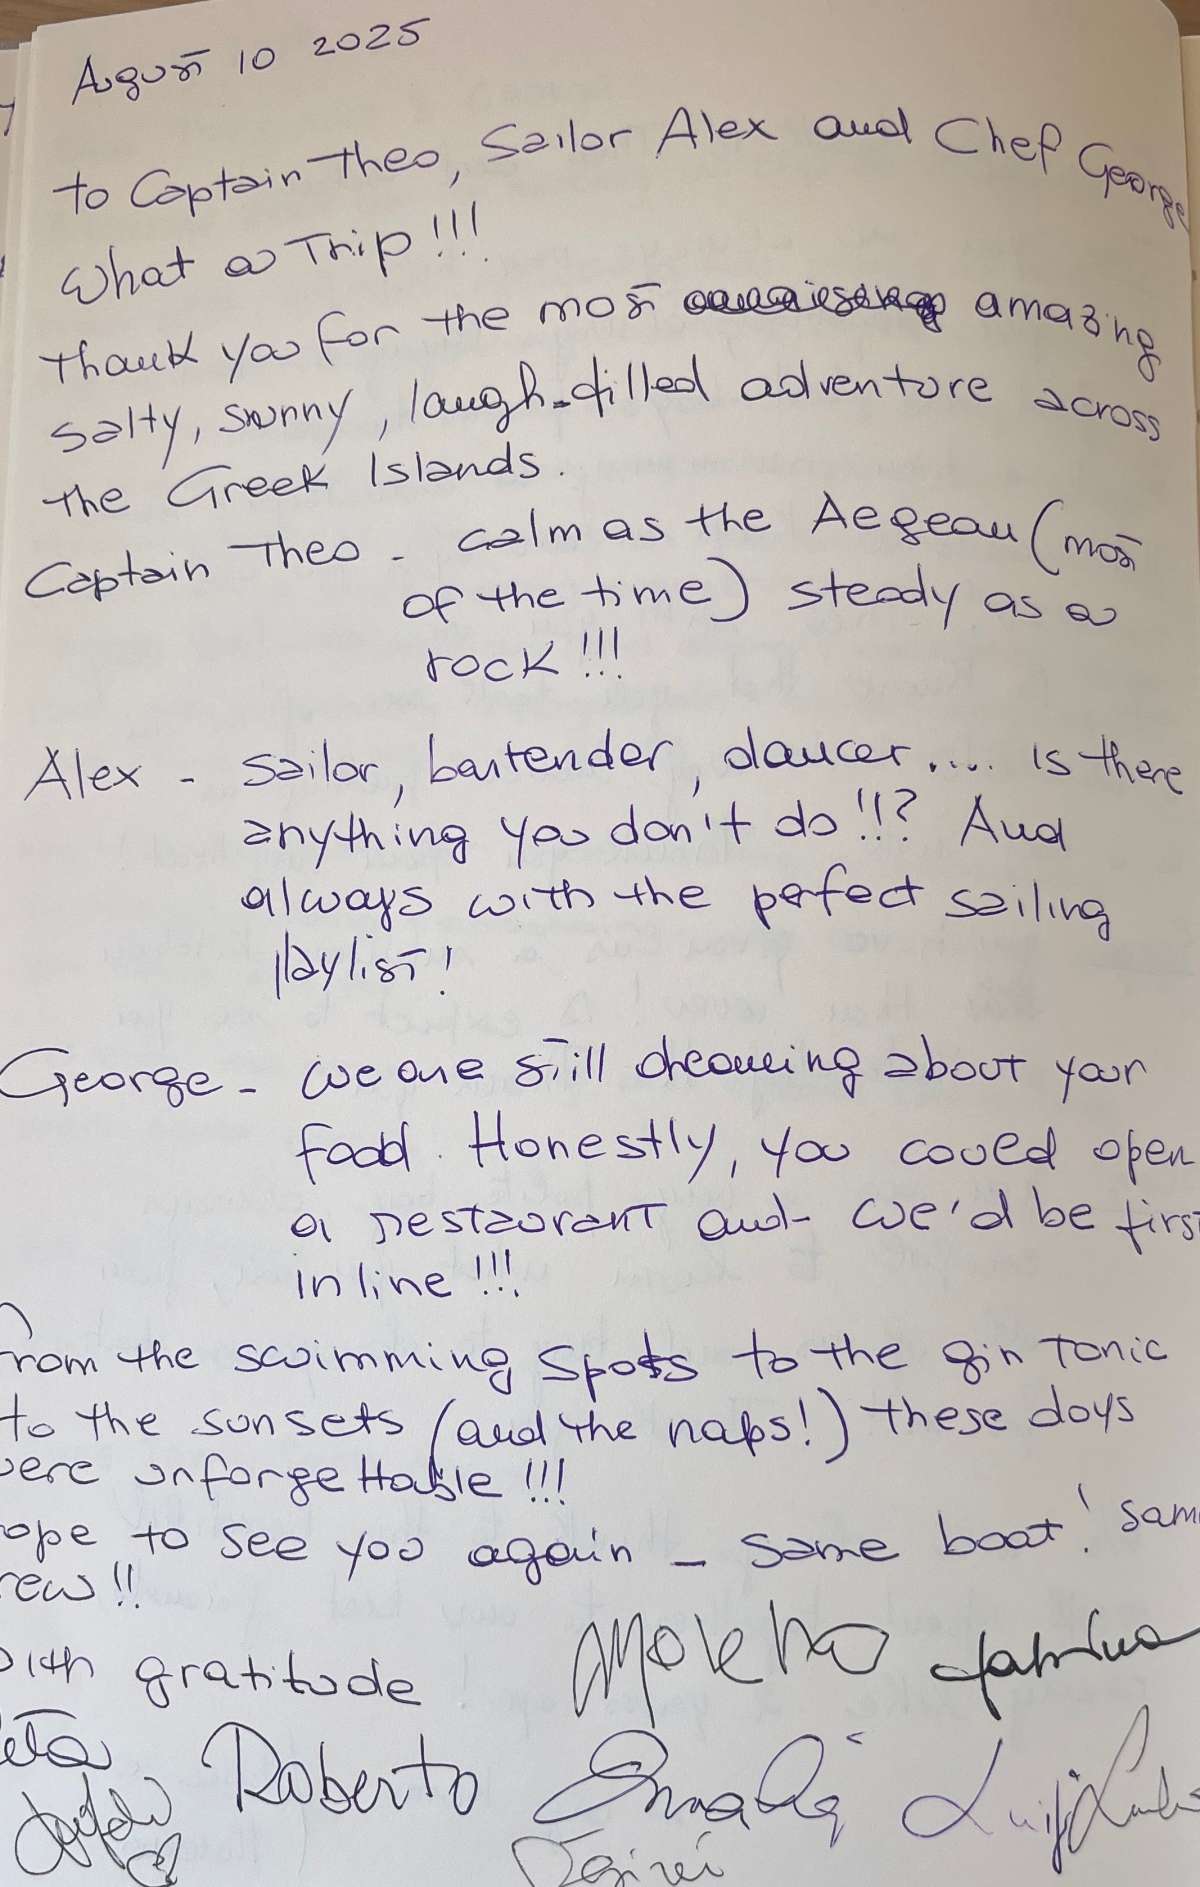 August 10 2025
To Captain Theo, Sailor Alex and Chef George
What a Trip!!!
Thank you for the most amazing
salty, sunny, laugh-filled adventure across
the Greek Islands.
Captain Theo - calm as the Aegean (most
of the time) steady as a
rock!!!
Alex - sailor, bartender, dancer.... is there
anything you don't do!!? And
always with the perfect sailing
playlist!
George - we are still dreaming about your
food. Honestly, you could open
a restaurant and we'd be first
in line!!!
rom the swimming spots to the gin tonic
to the sunsets (and the naps!) these days
were unforgettable!!!
ope to see you again - same boat! sam
rew!!
with gratitude
Roberto
Luigi